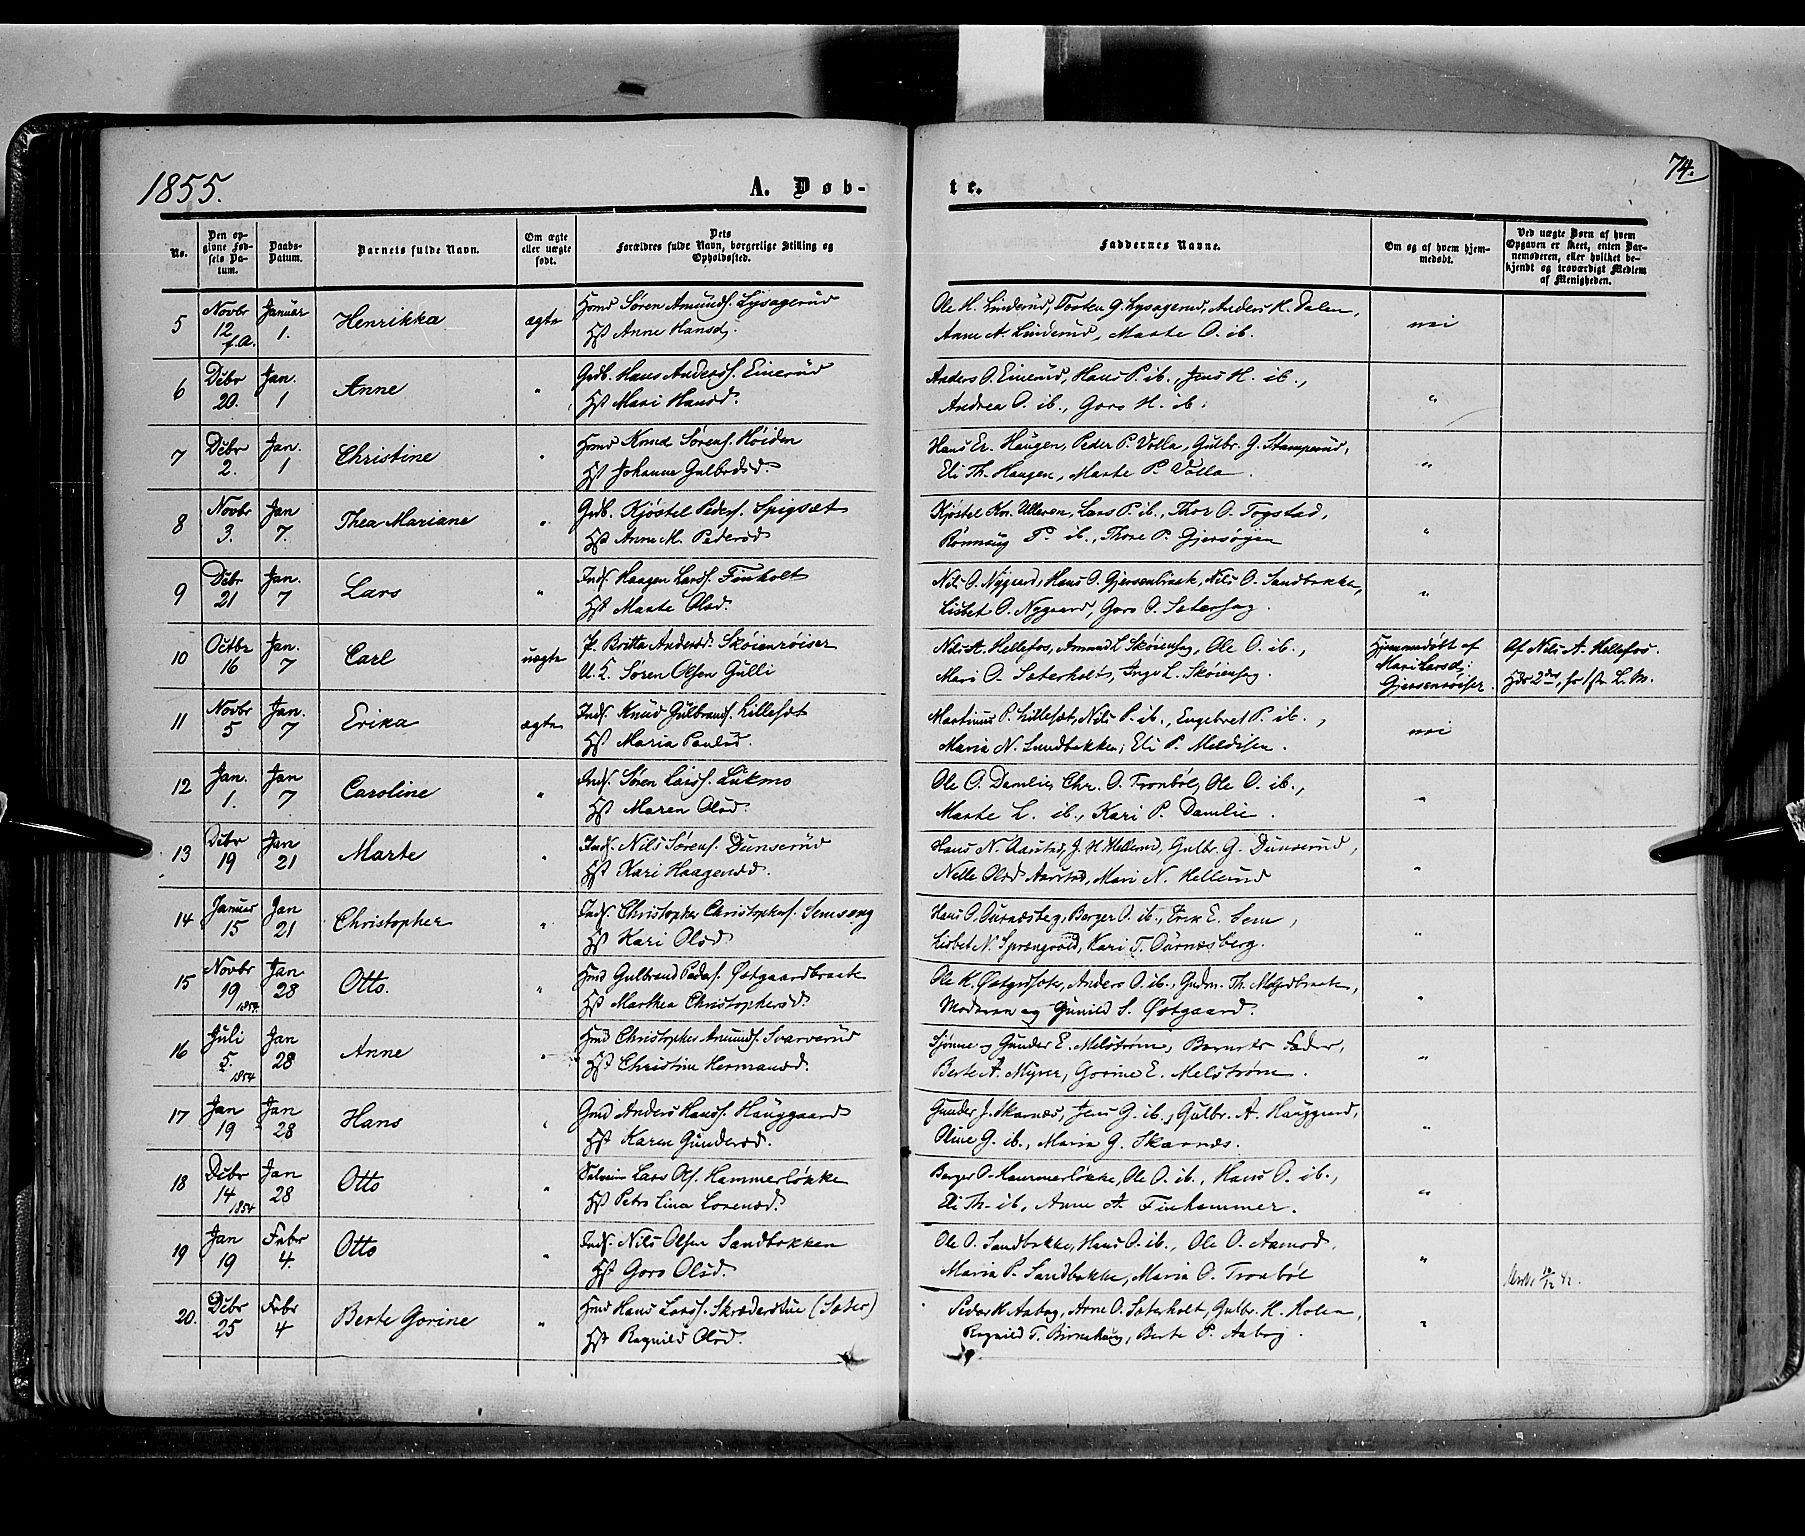 1855.
A. Døb-
te.
74.
No.
Den op-
givne Fød-
sels Da-
tum.
Daabs-
Datum.
Barnets fulde Navn.
Om ægte
eller uægte
født.
Dets
Forældres fulde Navn, borgerlige Stilling og
Opholdssted.
Faddernes Navne.
Om og af hvem hjem-
medøbt.
Ved uægte Børn af hvem
Opgaven er skeet, enten Bar-
nemoderen, eller hvilket be-
kjendt og troværdigt Medlem
af Menigheden.
5 Novbr 12 f.A. Januar 1. Henrikka ægte Søren Amunds. Lysagerud
Hst Anne Hansd.
Ole H. Linderud, Torsten G. Lysagerud, Anders K. Dalen,
Anne A. Linderud, Marte O. ib.
nei
6 Debr 20. Jan. 1 Anne " Grdb. Hans Anders. Einerud
Hst Mari Hansd.
Anders O. Einerud, Hans P. ib., Jens H. ib.,
Andrea O. ib., Goro H. ib.
"
7 Debr 2. Jan. 1 Christine " Knud Sørens. Høiden
Hst Johanne Gulbrdsd.
Hans Er. Haugen, Peder P. Volla, Gulbr. G. Stamperud,
Eli Th. Haugen, Marte P. Volla.
"
8 Novbr 3. Jan 7. Thea Mariane " Grdb. Kjøstel Peders. Spigset
Hst Anne M. Pedersd
Kjøstel Kn. Ulleren, Lars P. ib., Thor O. Togstad,
Rønnaug P. ib., Thore P. Gjersøyen
"
9 Debr 21 Jan. 7 Lars " Inds. Haagen Larss. Finholt
Hst Marte Olsd.
Nils O. Nygaard, Hans O. Gjersenbraat, Nils O. Sandbakke,
Lisbet O. Nygaard, Goro O. Saterhag.
"
10 Octbr 16 Jan. 7 Carl uægte P. Britta Andersd. Skøienrøiser
U. K. Søren Olsen Gulli
Nils A. Hellefos, Amund L Skøienhag, Ole O. ib.,
Mari O. Saterholt, Inge L. Skøienhag.
Hjemmedøbt af
Mari Larsd.
Gjersenrøiser.
Af Nils A. Hellefos.
11 Novbr 5 Jan. 7 Erika ægte Inds. Knud Gulbrands. Lilleset
Hst Maria Paulsd.
Martinus P. Lilleset, Nils P. ib., Engebret P. ib.,
Maria N. Sundbakken, Eli P. Meldisen.
nei
12 Jan. 1. Jan 7 Caroline " Inds. Søren Larss. Lukmo
Hst Maren Olsd.
Ole O. Damlie, Chr. O. Tronbøl, Ole O. ib.,
Marte L. ib., Kari P. Damlie.
"
13 Debr 19 Jan 21 Marte " Inds. Nils Sørens. Dunserud
Hst Kari Haagensd.
Hans N. Aarstad, J. H. Hellerud, Gulbr. G. Dunserud,
Nelle Olsd Aarstad, Mari N. Hellerud
"
14 Januar 15 Jan 21 Christopher " Inds. Christopher Christophers. Semseng
Hst Kari Olsd
Hans O. Ournæsberg, Berger O. ib., Erik E. Sem,
Lisbet N. Sprangvold, Kari T. Ournæsberg.
"
15 Novbr 19 1854 Jan 28 Otto. " Hmd Gulbrand Peders. Østgaardbraate
Hst Marthea Christophersd.
Ole K. , Anders O. ib., Gudm. Th. ,
Moderen og Gunild S. Østgaard.
"
16 Juli 5. 1854 Jan 28 Anne " Hmd Christopher Amunds. Svarverud
Hst Christine Hermansd.
og Gunder E. Melstrøm, Barnets Fader,
Berte A. Myrer, Gorine E. Melstrøm.
"
17 Jan 19 Jan 28 Hans " Anders Hanss. Hauggaard
Hst Karen Gundersd.
Gunder J. Skarnæs, Jens G. ib., Gulbr. A. Hauggard,
Oline G. ib., Maria G. Skarnæs.
"
18 Debr 14 1854 Jan 28 Otto " Lars Ols. Hammerløkke
Hst Petra Lina Lorensd.
Berger O. Hammerløkke, Ole O. ib., Hans O. ib.,
Eli Th. ib., Anne A. Finhammer.
"
19 Jan 19 Febr 4. Otto " Inds. Nils Olsen Sandbakken
Hst Goro Olsd.
Ole O. Sandbakke, Hans O. ib., Ole O. Aamod,
Maria P. Sandbakke, Maria O. Tronbøl
"
20. Debr 25 Febr 4 Berte Gorine " Hmd Hans Larss. Skræderstue (Sater)
Hst Ragnild Olsd.
Peder K Aabog, Arne O. Saterholt, Gulbr. H. Holen,
Ragnild T. Birnehaug, Berte P. Aabog.
"